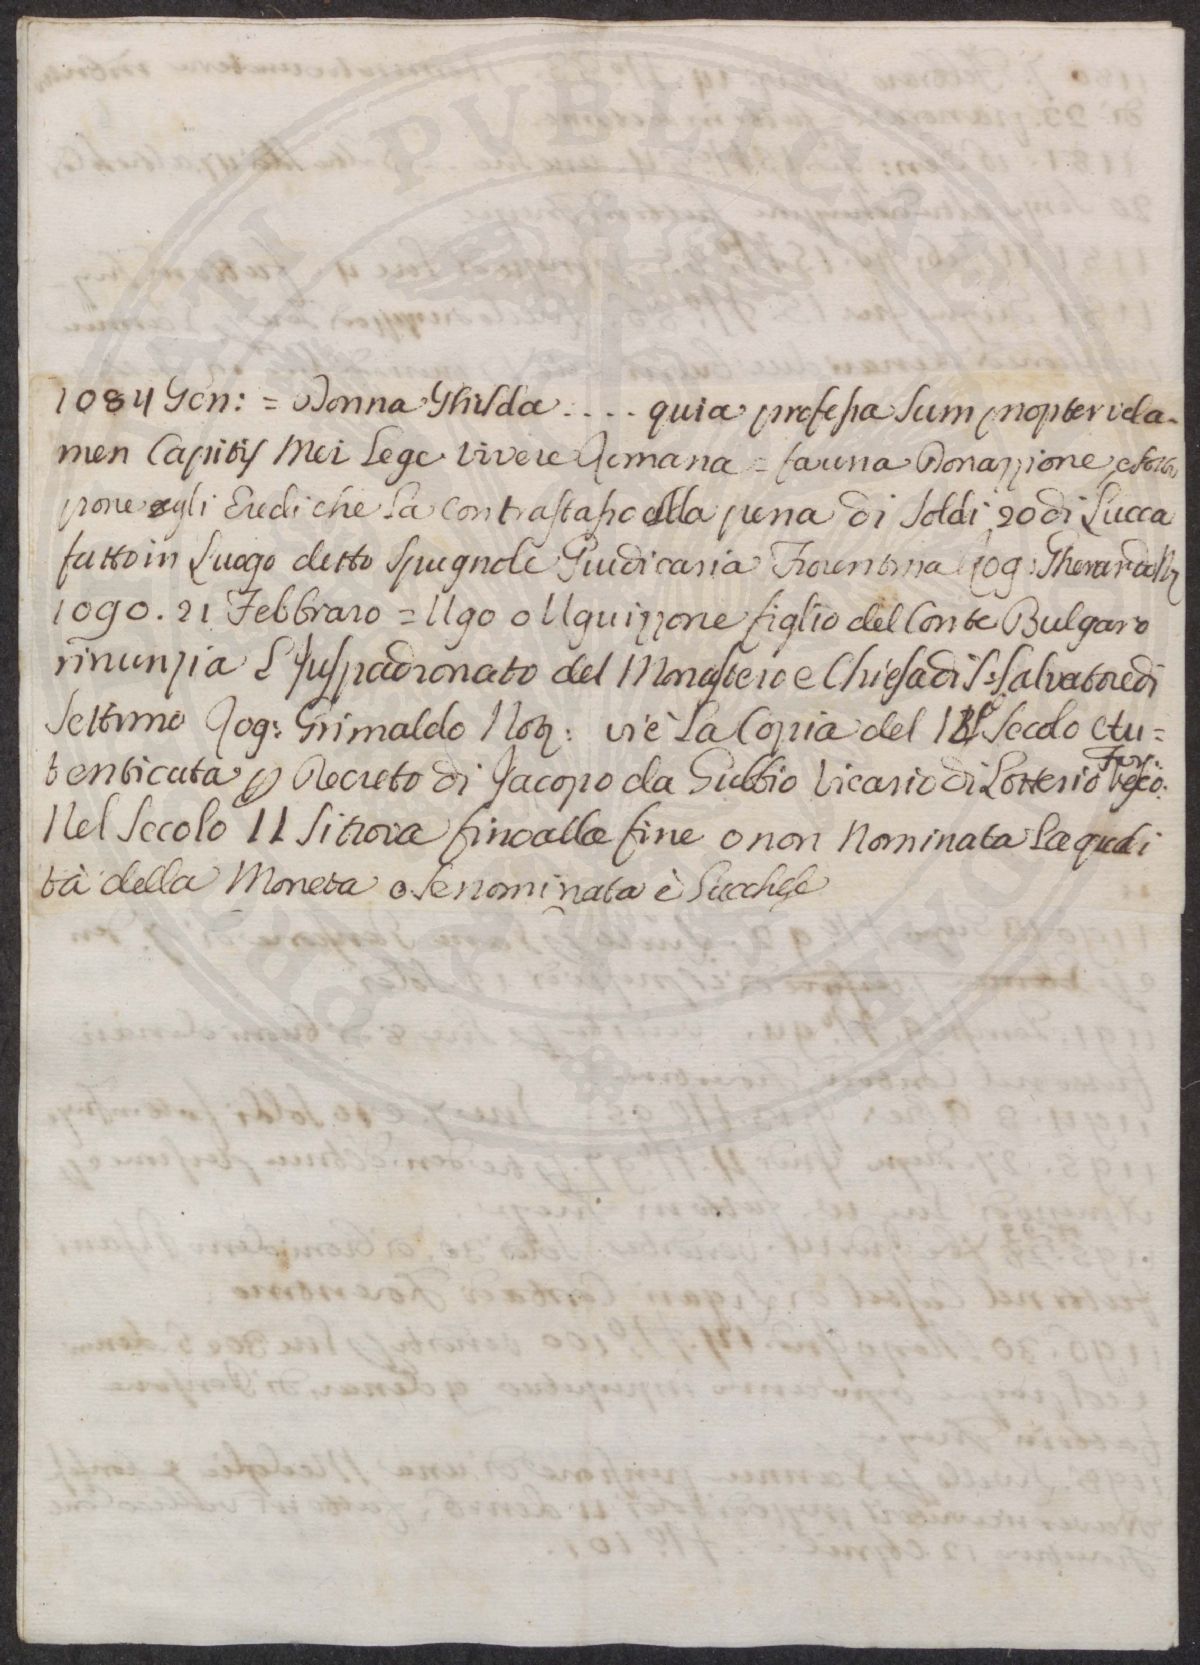 1084 Gen: = Donna Ghisda .... quia professa sum propter vela-
men Capitis Mei Lege vivere Romana = fa una Donazzione, e sotto
pone agli Eredi che la contrastasso alla pena di soldi 20 di Lucca
fatto in Luogo detto Spugnole Giudicaria Fiorentina Rog: Gherardo
1090. 21 Febbraro = Ugo o Uguizzone figlio del Conte Bulgaro
rinunzia l'Juspadronato del Monastero e Chiesa di S: Salvatore di
Settimo Rog: Grimaldo Not: vi è la Copia del Secolo Au=
tenticata p Decreto di Jacopo da Gubbio Vicario di Lotterio
Nel Secolo 11 si trova fino alla fine o non Nominata la quali
tà della Moneta o se nominata è Lucchese